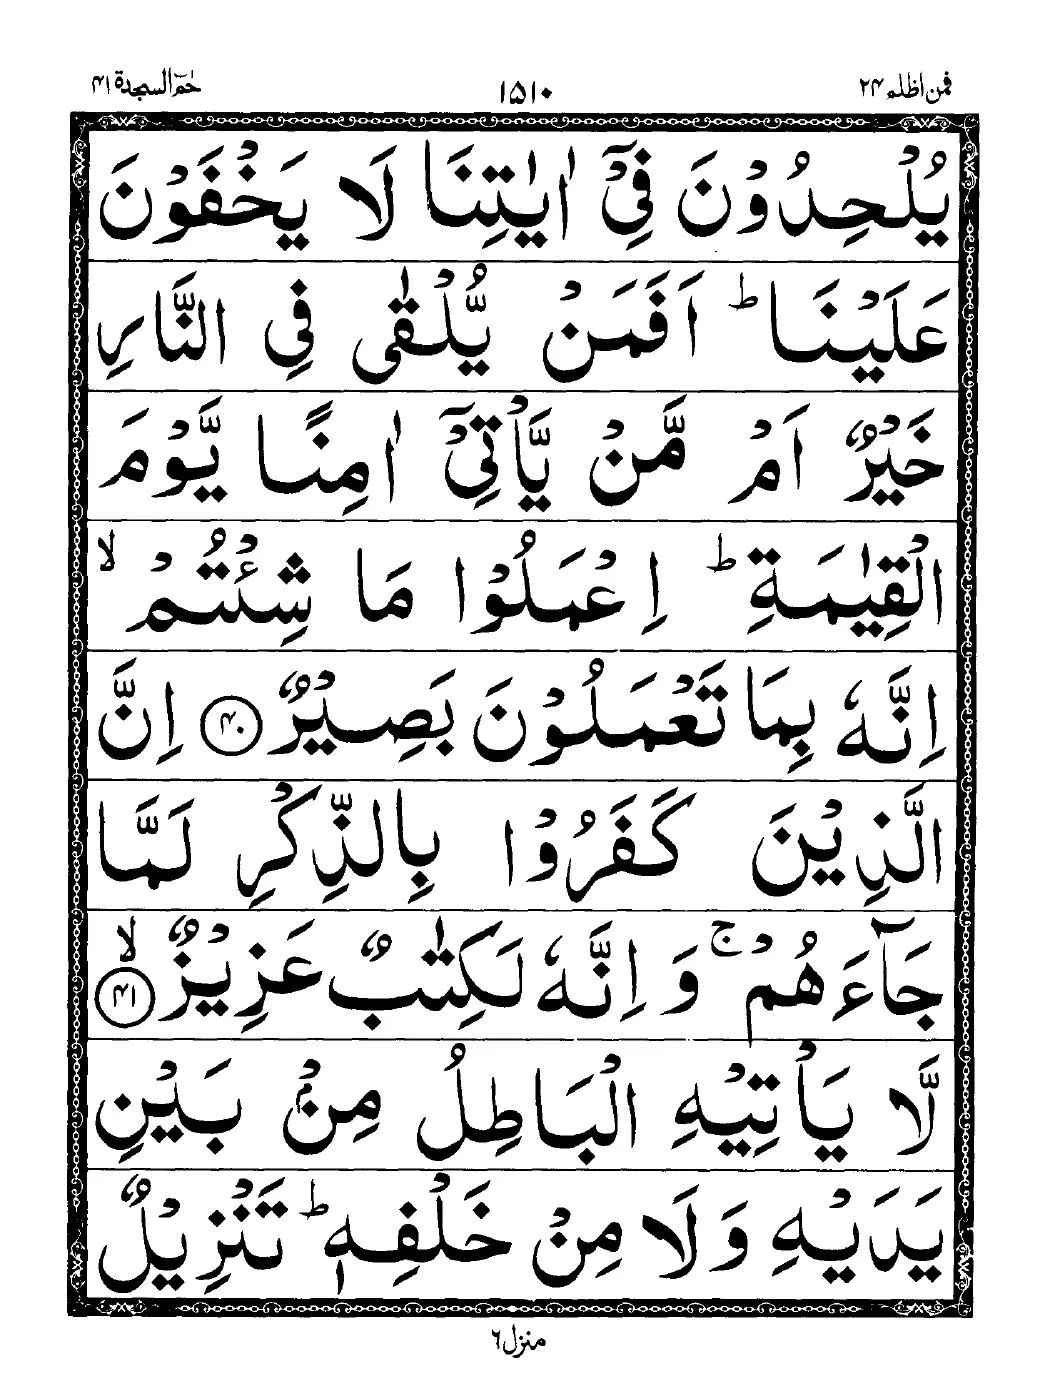 فمن اظلم ۲۴
۱۵۱۰
حٰمٓ السجدة ۴۱
يُلْحِدُوْنَ فِيْٓ اٰيٰتِنَا لَا يَخْفَوْنَ
عَلَيْنَا ؕ اَفَمَنْ يُّلْقٰى فِي النَّارِ
خَيْرٌ اَمْ مَّنْ يَّاْتِيْٓ اٰمِنًا يَّوْمَ
الْقِيٰمَةِ ؕ اِعْمَلُوْا مَا شِئْتُمْ ۙ
اِنَّهٗ بِمَا تَعْمَلُوْنَ بَصِيْرٌ ۴۰ اِنَّ
الَّذِيْنَ كَفَرُوْا بِالذِّكْرِ لَمَّا
جَآءَهُمْ ۚ وَ اِنَّهٗ لَكِتٰبٌ عَزِيْزٌ ۙ ۴۱
لَّا يَاْتِيْهِ الْبَاطِلُ مِنْۢ بَيْنِ
يَدَيْهِ وَلَا مِنْ خَلْفِهٖ ؕ تَنْزِيْلٌ
منزل ۶